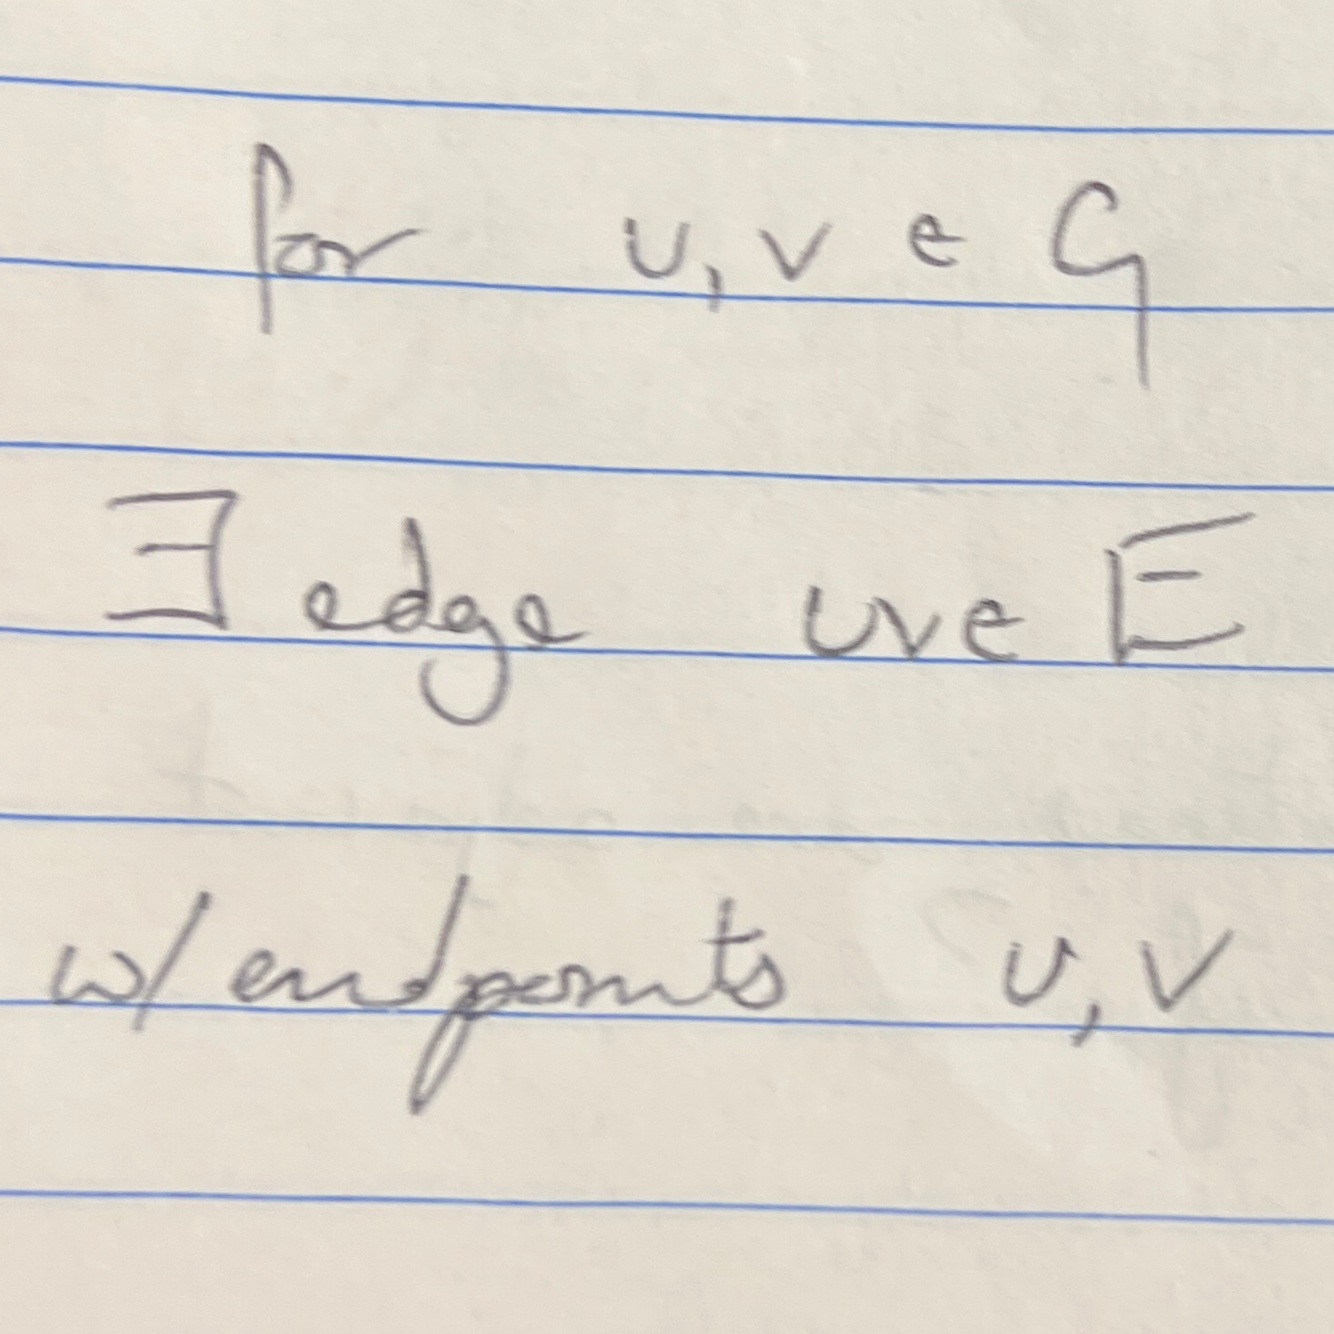 for u, v ∈ G
∃ edge uv ∈ E
w/ endpoints u, v